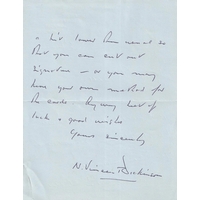 a bit lower than usual so
that you can cut out
signature – or you may
have your own method for
the cards. Anyway best of
luck & good wishes
Yours sincerely
N. Vincent Dickinson